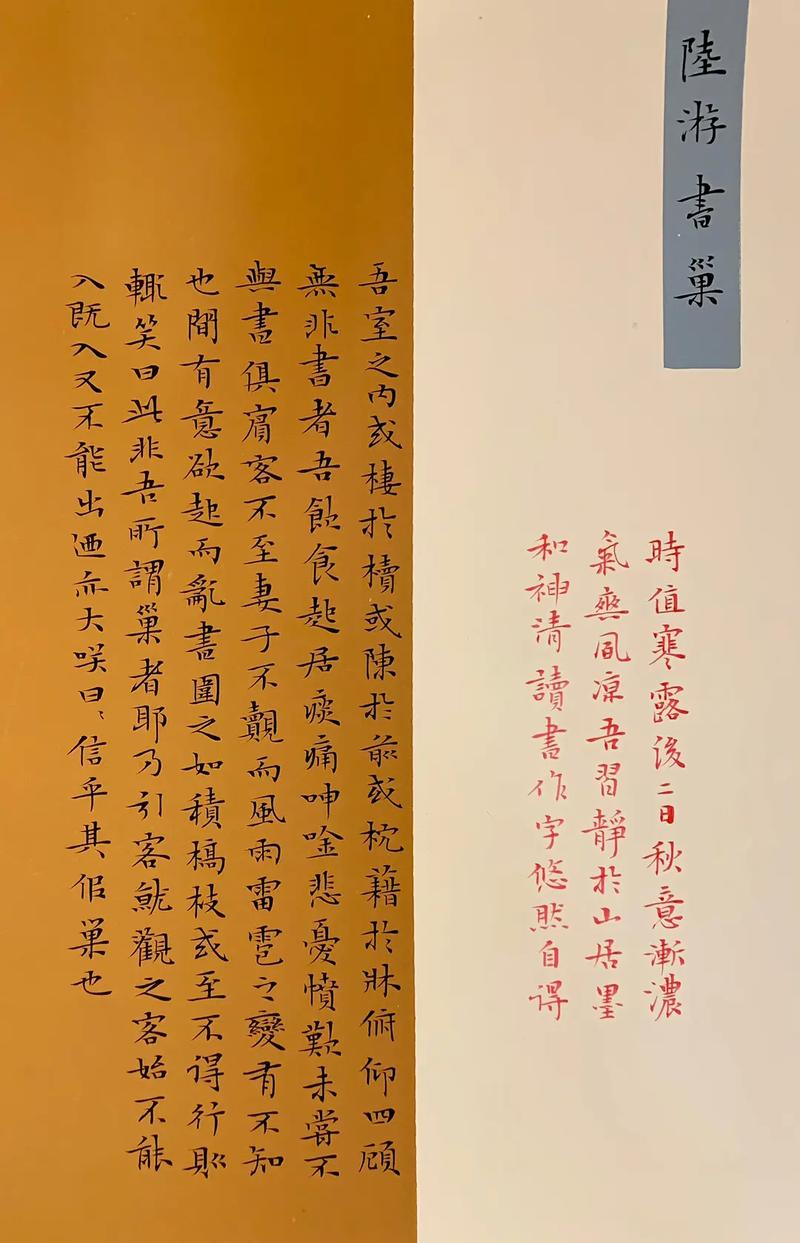 陸游書巢
時值寒露後二日秋意漸濃
氣爽風凉吾習靜於山居墨
和神清讀書作字悠然自得
吾室之內或棲於櫝或陳於前或枕藉於牀俯仰四顧
無非書者吾飲食起居疾痛呻唫悲憂憤歎未嘗不
與書俱賓客不至妻子不覿而風雨雷雹之變有不知
也間有意欲起而亂書圍之如積槁枝或至不得行則
輒笑曰此非吾所謂巢者耶乃引客就觀之客始不能
入既入又不能出迺亦大咲曰、信乎其佀巢也